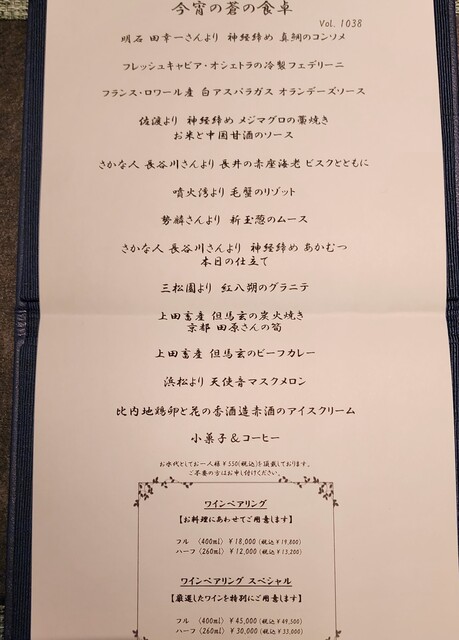 今宵の蒼の食卓
Vol. 1038
明石 田幸一さんより 神経締め 真鯛のコンソメ
フレッシュキャビア・オシェトラの冷製フェデリーニ
フランス・ロワール産 白アスパラガス オランデーズソース
佐渡より 神経締め メジマグロの藁焼き
お米と中国甘酒のソース
さかな人 長谷川さんより 長井の赤座海老 ビスクとともに
噴火湾より 毛蟹のリゾット
勢麟さんより 新玉葱のムース
さかな人 長谷川さんより 神経締め あかむつ
本日の仕立て
三松園より 紅八朔のグラニテ
上田畜産 但馬玄の炭火焼き
京都 田原さんの筍
上田畜産 但馬玄のビーフカレー
浜松より 天使音マスクメロン
比内地鶏卵と花の香酒造赤酒のアイスクリーム
小菓子＆コーヒー
お水代としてお一人様¥550(税込)を頂戴しております。
ご不要の方はお申し付けください。
ワインペアリング
【お料理にあわせてご用意します】
フル 〈400ml〉 ¥18,000 (税込 ¥19,800)
ハーフ 〈260ml〉 ¥12,000 (税込 ¥13,200)
ワインペアリング スペシャル
【厳選したワインを特別にご用意します】
フル 〈400ml〉 ¥45,000 (税込 ¥49,500)
ハーフ 〈260ml〉 ¥30,000 (税込 ¥33,000)